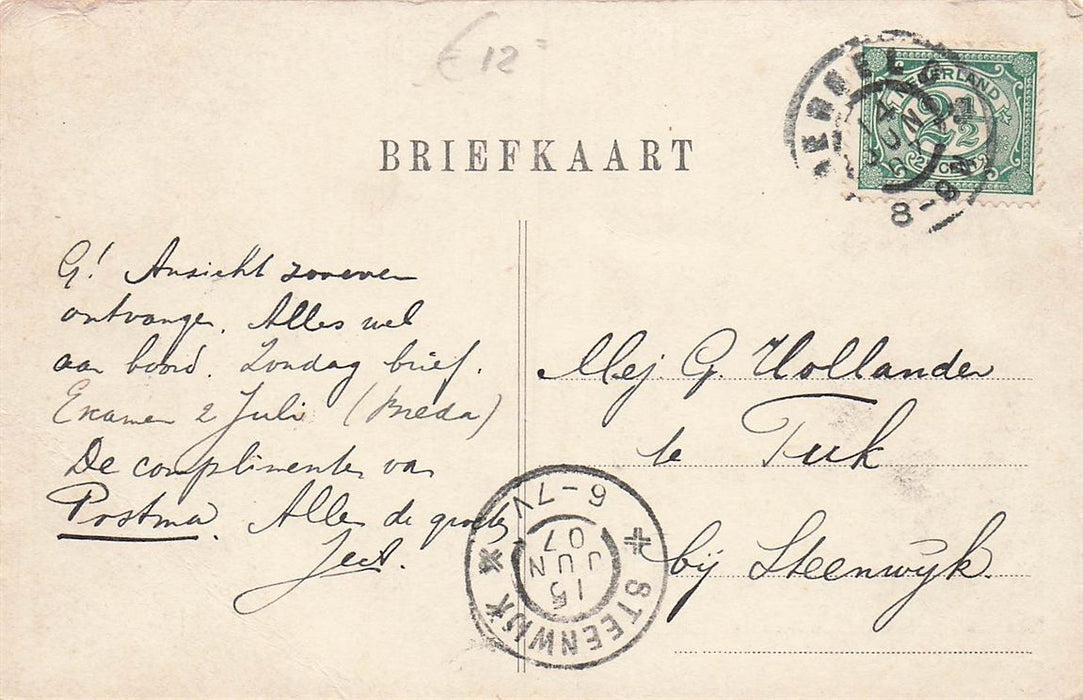 € 12=
BRIEFKAART
NEDERLAND
2 1/2
CENT
14 JUN
8-9V
G! Ansicht zooeven
ontvangen. Alles wel
aan boord. Zondag brief.
Examen 2 Juli (Breda)
De complimenten van
Postma. Alle de groeten
Mej. G. Hollander
te Tuk
bij Steenwijk.
STEENWIJK
15 JUN 07
6-7V